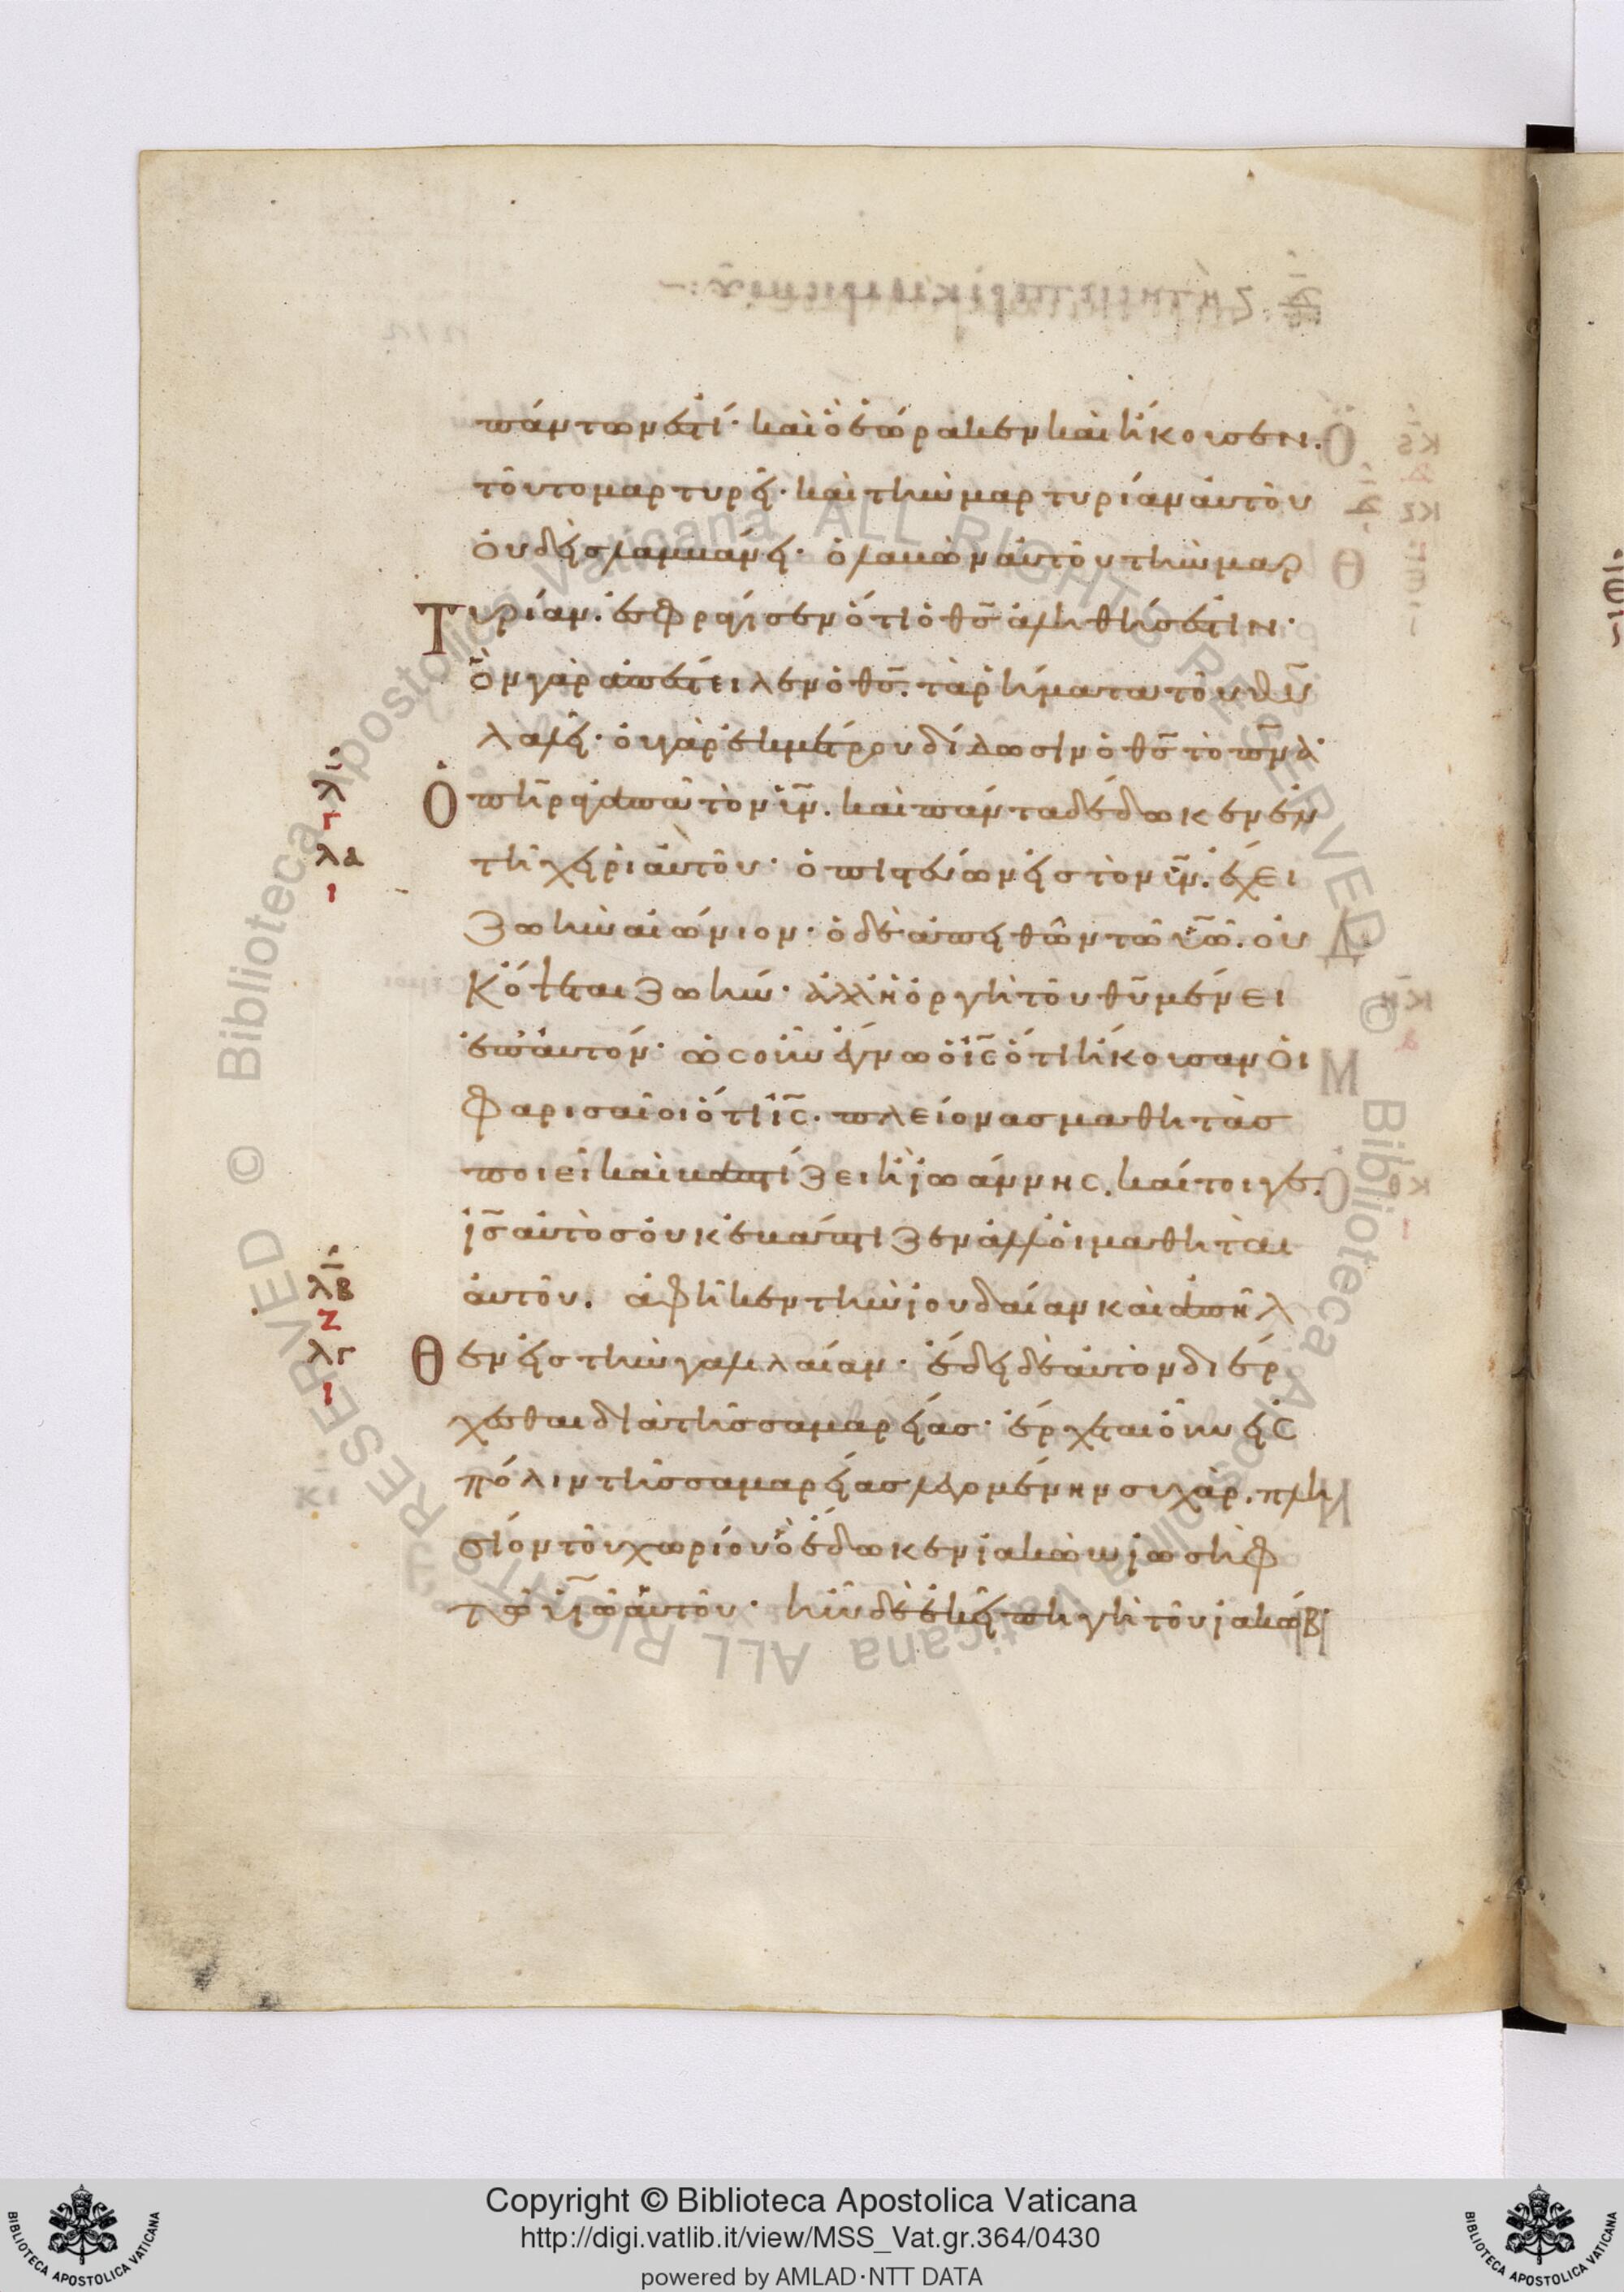 πάντων ἐστί· καὶ ὃ ἑώρακεν καὶ ἤκουσεν.
τοῦτο μαρτυρεῖ· καὶ τὴν μαρτυρίαν αὐτοῦ
οὐδεὶς λαμβάνει· ὁ λαβὼν αὐτοῦ τὴν μαρ
Τυρίαν. ἐσφράγισεν ὅτι ὁ θς ἀληθής ἐστιν·
ὃν γὰρ ἀπέστειλεν ὁ θς. τὰ ῥήματα τοῦ θυ
λαλεῖ· οὐ γὰρ ἐκ μέτρου δίδωσιν ὁ θς τὸ πνα·
Ὁ πηρ ἀγαπᾶ τὸν υν. καὶ πάντα δέδωκεν ἐν
τῆ χειρὶ αὐτοῦ· ὁ πιστεύων εἰς τὸν υν. ἔχει
ζωὴν αἰώνιον· ὁ δὲ ἀπειθῶν τῶ υω. οὐ
κ ὄψεται ζωήν· ἀλλ ἡ ὀργὴ τοῦ θυ μένει
ἐπ αὐτόν· ὡς οὖν ἔγνω ὁ ις ὅτι ἤκουσαν οἱ
φαρισαῖοι ὅτι ις. πλείονας μαθητὰς
ποιεῖ καὶ βαπτίζει ἢ ἰωάννης. καίτοιγε.
ις αὐτὸς οὐκ ἐβάπτιζεν ἀλλ οἱ μαθηταὶ
αὐτοῦ. ἀφῆκεν τὴν ἰουδαίαν καὶ ἀπῆλ
Θεν εἰς τὴν γαλιλαίαν· ἔδει δὲ αὐτὸν διέρ
χεσθαι διὰ τῆς σαμαρείας· ἔρχεται οὖν εἰς
πόλιν τῆς σαμαρείας λεγομένην συχὰρ. πλη
σίον τοῦ χωρίου ὃ ἔδωκεν ἰακὼβ ἰωσὴφ
τῶ υἱῶ αὐτοῦ· ἦν δὲ ἐκεῖ πηγὴ τοῦ ἰακώβ·
λ
Γ
λα
Ι
λβ
Ζ
λγ
Ι
Copyright © Biblioteca Apostolica Vaticana
http://digi.vatlib.it/view/MSS_Vat.gr.364/0430
powered by AMLAD·NTT DATA
BIBLIOTECA APOSTOLICA VATICANA
BIBLIOTECA APOSTOLICA VATICANA
© Biblioteca Apostolica Vaticana ALL RIGHTS RESERVED © Biblioteca Apostolica Vaticana ALL RIGHTS RESERVED